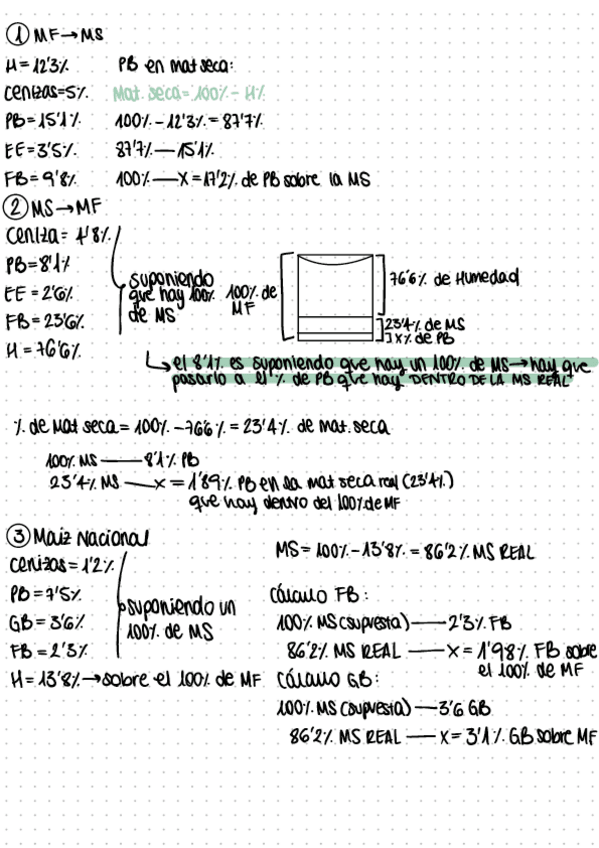 ① MF→MS
H = 12'3%
PB en mat seca:
Cenizas=5%
Mat. seca= 100% - H%
PB=15'1%
100% - 12'3% = 87'7%
EE=3'5%
87'7% — 15'1%
FB= 9'8%
100% — X = 17'2% de PB sobre la MS
② MS→MF
Ceniza= 4'8%
PB=8'1%
EE = 2'6%
FB= 23'6%
H = 76'6%
suponiendo
que hay 100%
de MS
100% de
MF
76'6% de Humedad
23'4% de MS
X% de PB
↳ el 8'1% es suponiendo que hay un 100% de MS→hay que
pasarlo a el % de PB que hay DENTRO DE LA MS REAL
% de Mat seca = 100% - 76'6% = 23'4% de mat. seca
100% MS — 8'1% PB
23'4% MS — x = 1'89% PB en la mat seca real (23'4%)
que hay dentro del 100% de MF
③ Maiz Nacional
Cenizas = 1'2%
PB = 7'5%
GB = 3'6%
FB = 2'3%
suponiendo un
100% de MS
H = 13'8% → sobre el 100% de MF
MS = 100% - 13'8% = 86'2% MS REAL
Cálculo FB:
100% MS (supuesta) — 2'3% FB
86'2% MS REAL — X = 1'98% FB sobre
el 100% de MF
Cálculo GB:
100% MS (supuesta) — 3'6 GB
86'2% MS REAL — X = 3'1% GB sobre MF